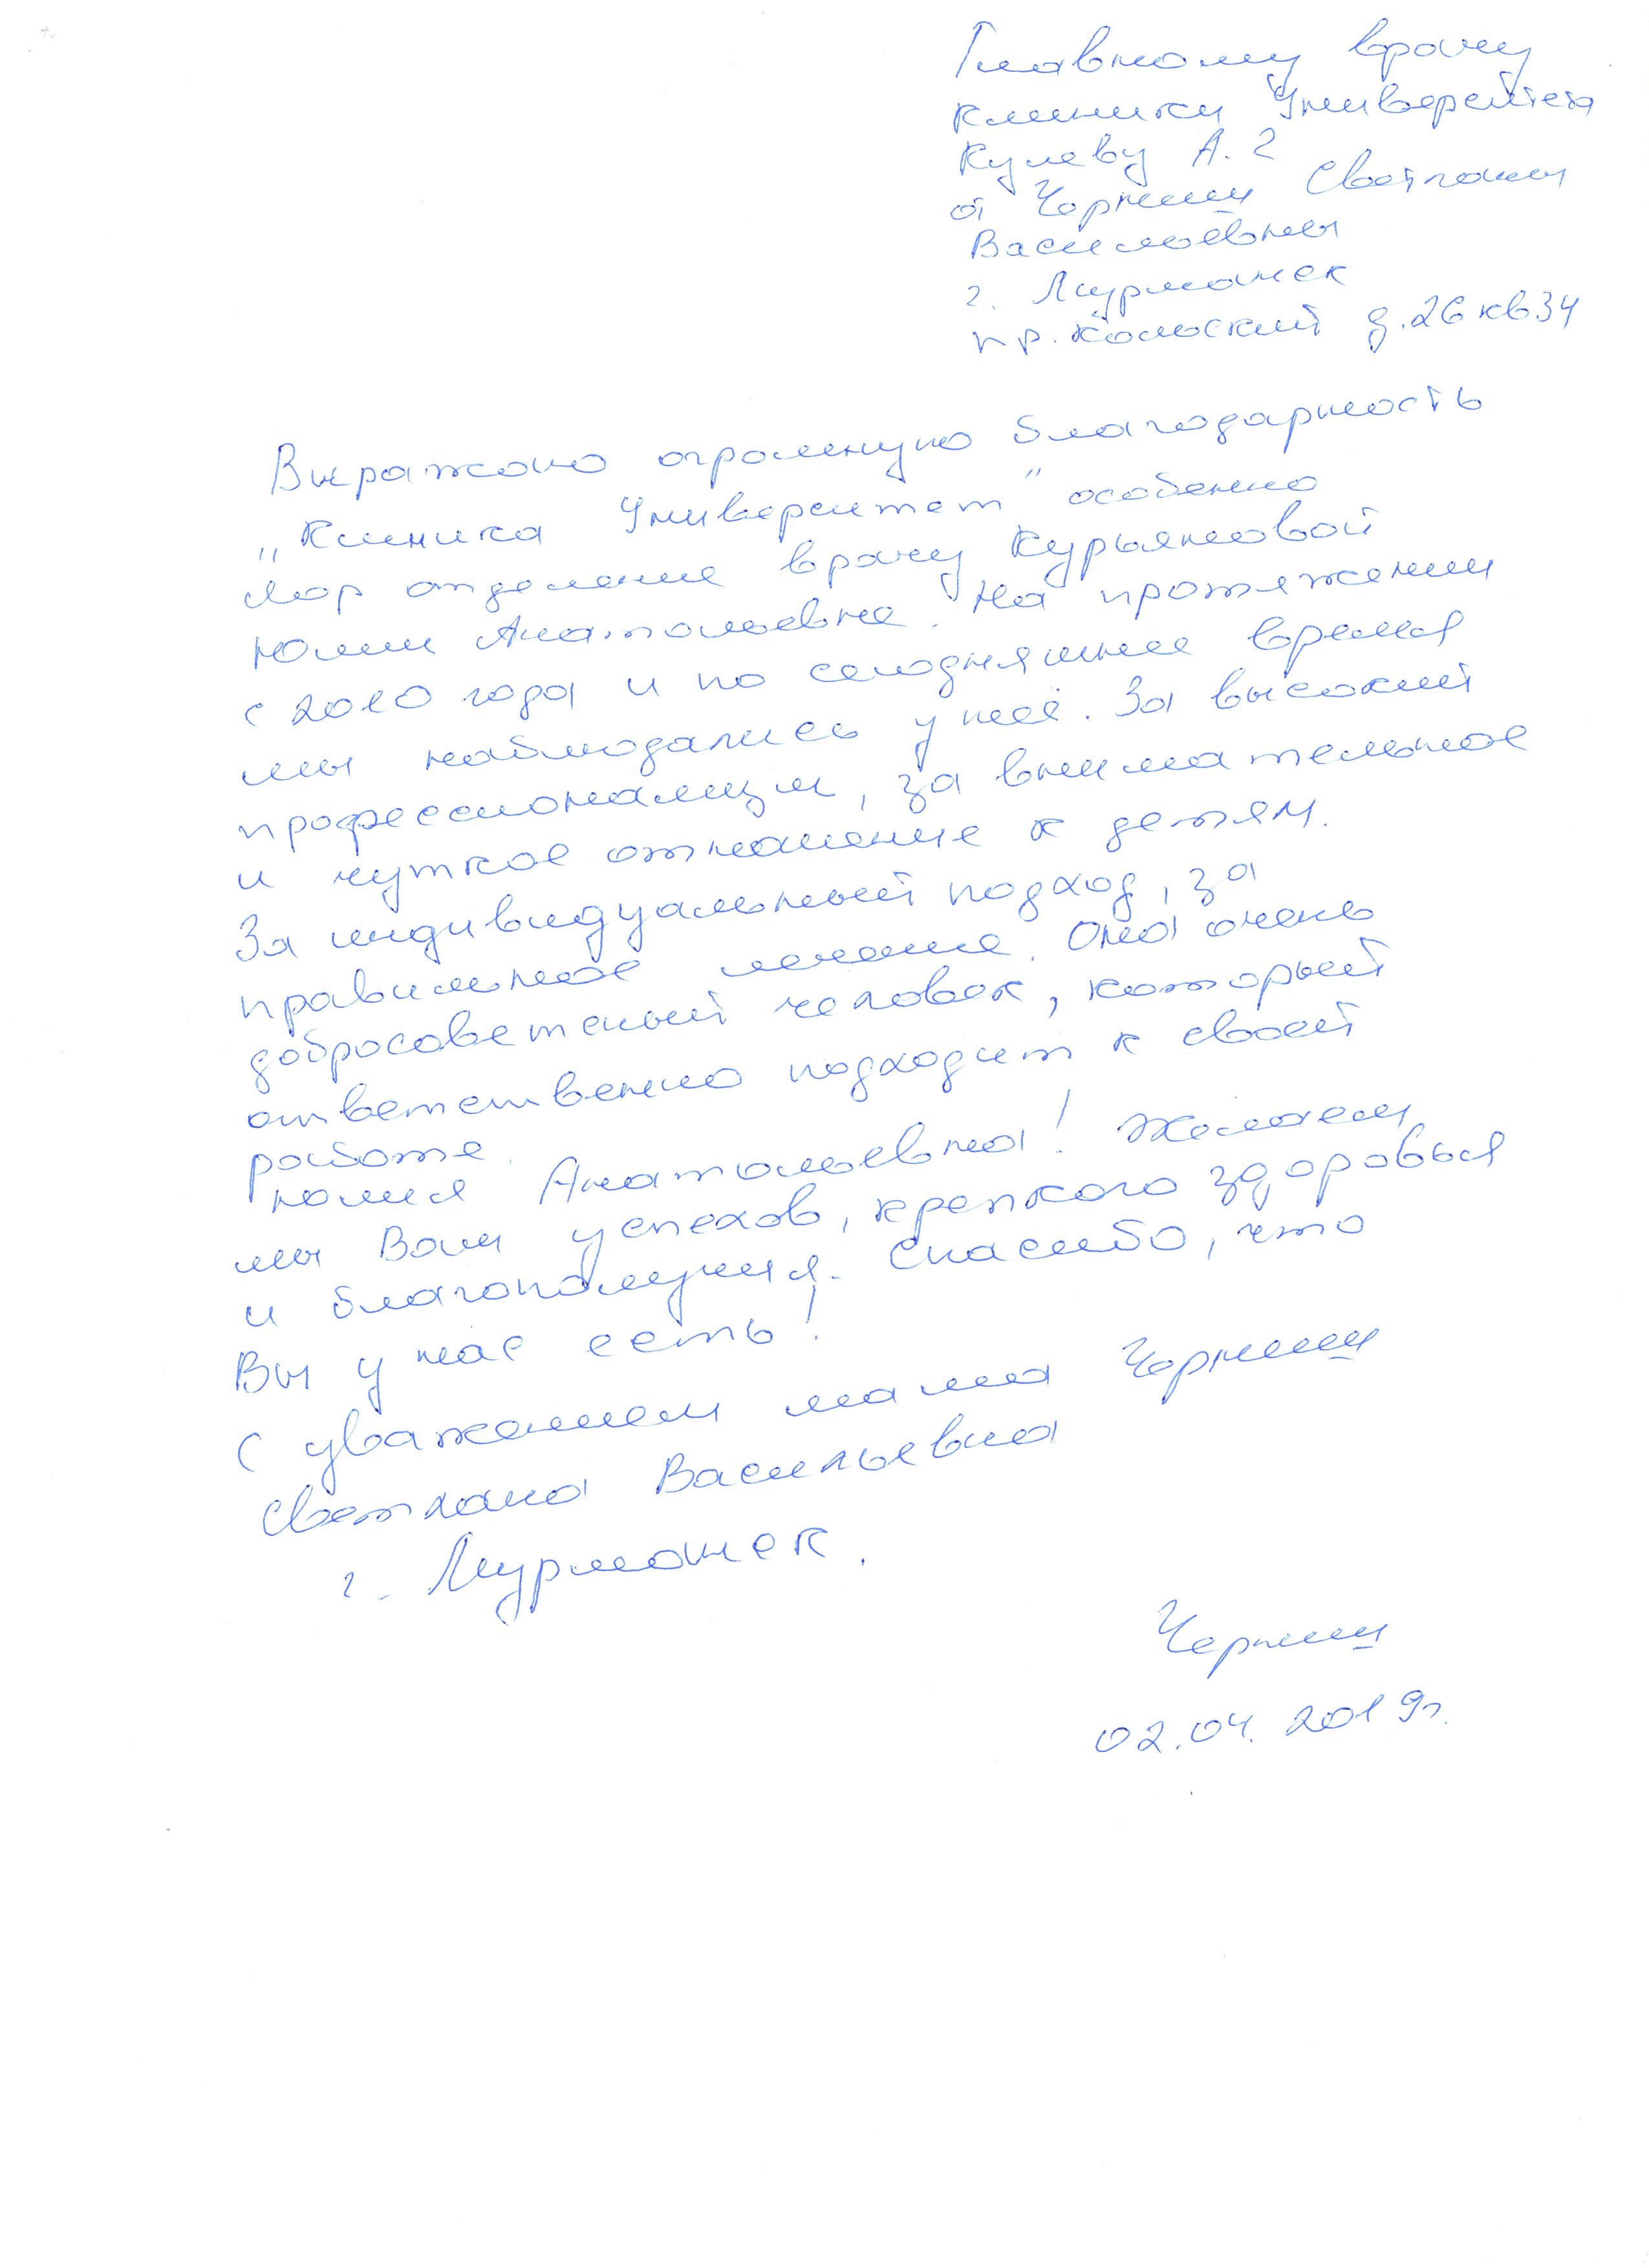 Главному врачу
клиники Университета
Кулеву А. Г
от Черниш Светланы
Васильевны
г. Мурманск
пр. Кольский д. 26 кв 34
Выражаю огромную благодарность
"Клиника Университет" особенно
Лор отделение врачу Курьяновой
Юлии Анатольевне. На протяжении
с 2010 года и по сегодняшнее время
мы наблюдались у неё. За высокий
профессионализм, за внимательное
и чуткое отношение к детям.
За индивидуальный подход, за
правильное лечение. Она очень
добросовестный человек, который
ответственно подходит к своей
работе.
Юлия Анатольевна! Желаем
мы Вам успехов, крепкого здоровья
и благополучия. Спасибо, что
Вы у нас есть!
С уважением мама Черниш
Светлана Васильевна
г. Мурманск.
Черниш
02.04.2019г.